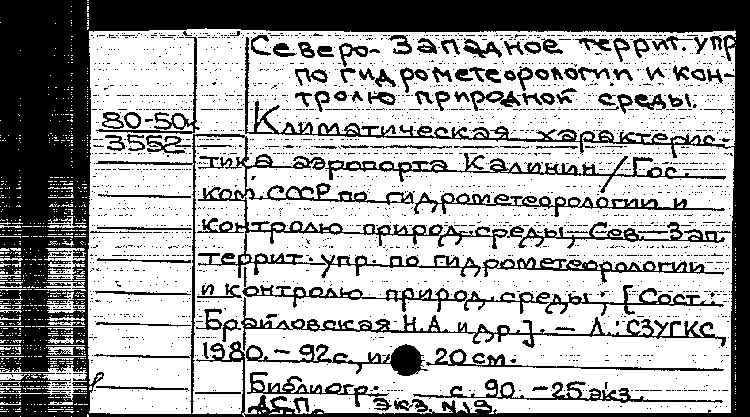 Северо-Западное террит. упр
по гидрометеорологии и кон-
тролю природной среды.
80-50к
3552
Климатическая характерис-
тика аэропорта Калинин / Гос.
ком. СССР по гидрометеорологии и
контролю природ. среды, Сев. Зап.
террит. упр. по гидрометеорологии
и контролю природ. среды; [Сост.:
Брайловская Н.А. и др.]. — Л.: СЗУГКС,
1980. – 92 с., 20 см.
Библиогр. с. 90. – 25 экз.
ДСП экз. N19.